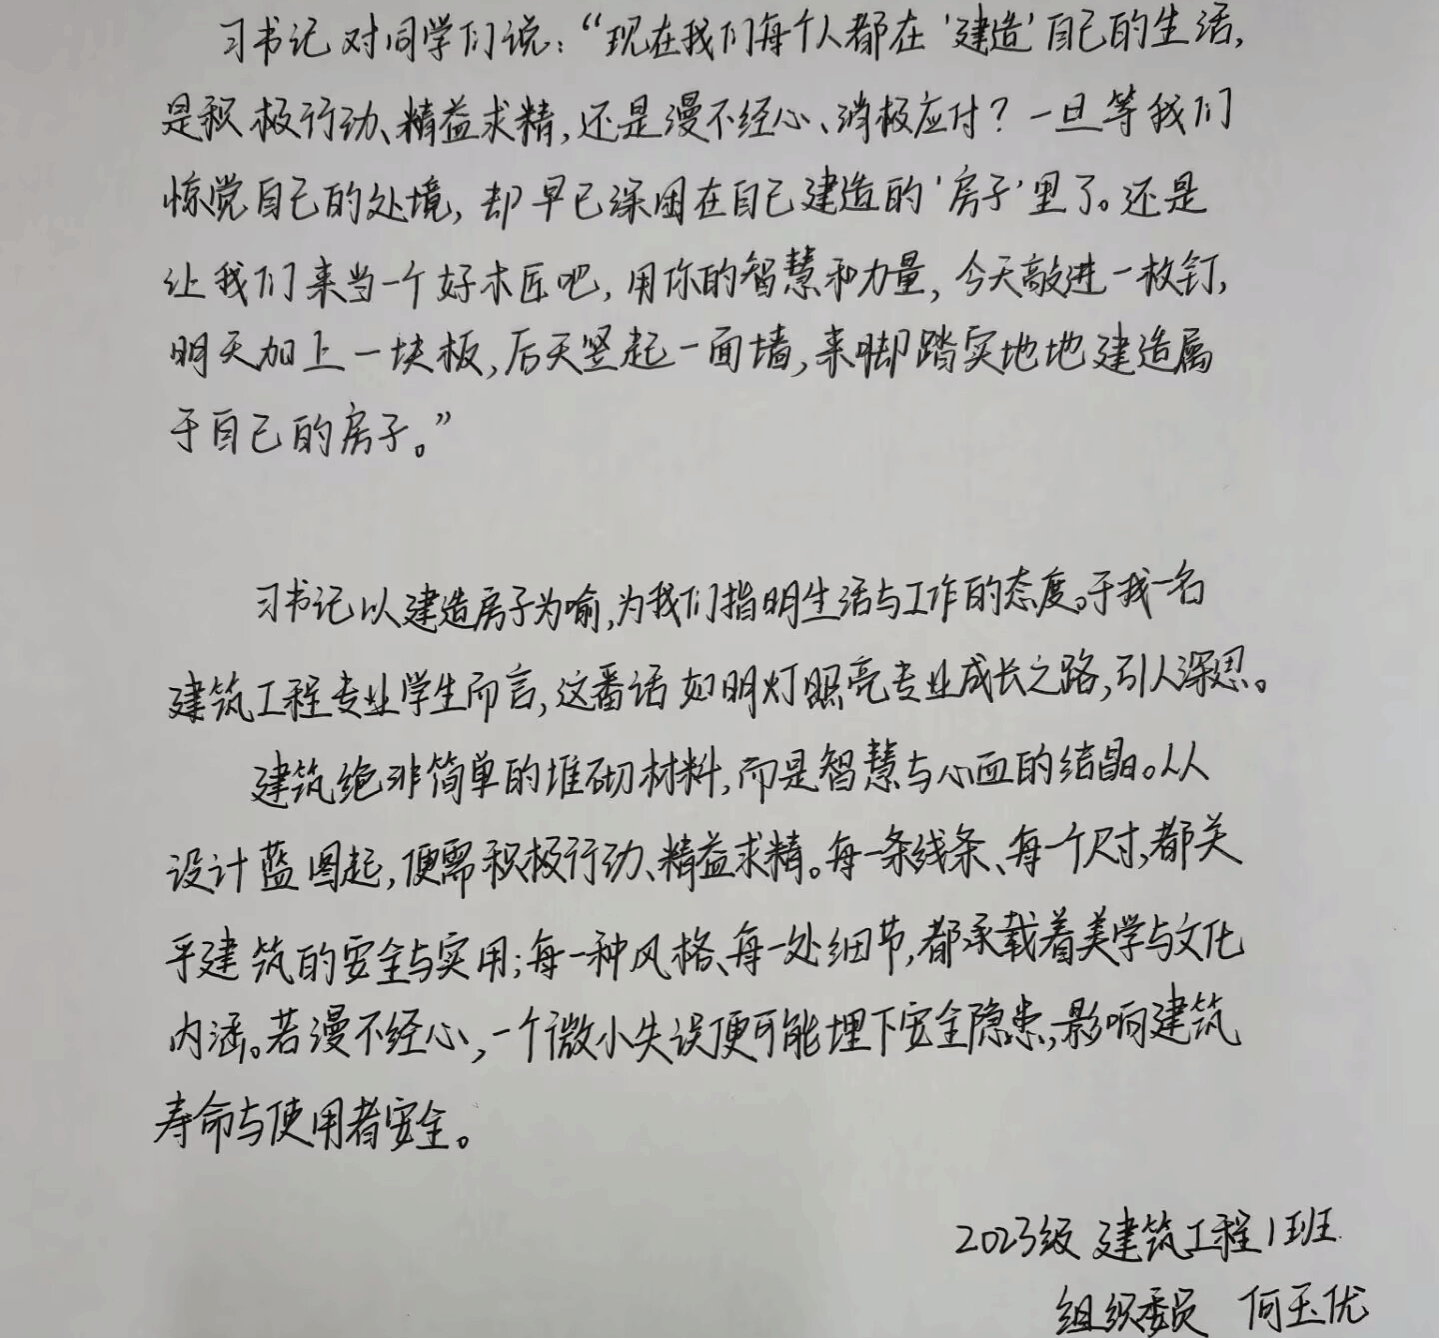 习书记对同学们说：“现在我们每个人都在‘建造’自己的生活，
是积极行动、精益求精，还是漫不经心、消极应付？一旦等我们
惊觉自己的处境，却早已深困在自己建造的‘房子’里了。还是
让我们来当一个好木匠吧，用你的智慧和力量，今天敲进一枚钉，
明天加上一块板，后天竖起一面墙，来脚踏实地地建造属
于自己的房子。”
习书记以建造房子为喻，为我们指明生活与工作的态度。于我一名
建筑工程专业学生而言，这番话如明灯照亮专业成长之路，引人深思。
建筑绝非简单的堆砌材料，而是智慧与心血的结晶。从
设计蓝图起，便需积极行动、精益求精。每一条线条、每一个尺寸，都关
乎建筑的安全与实用；每一种风格、每一处细节，都承载着美学与文化
内涵。若漫不经心，一个微小失误便可能埋下安全隐患，影响建筑
寿命与使用者安全。
2023级 建筑工程1班
组织委员 何玉优